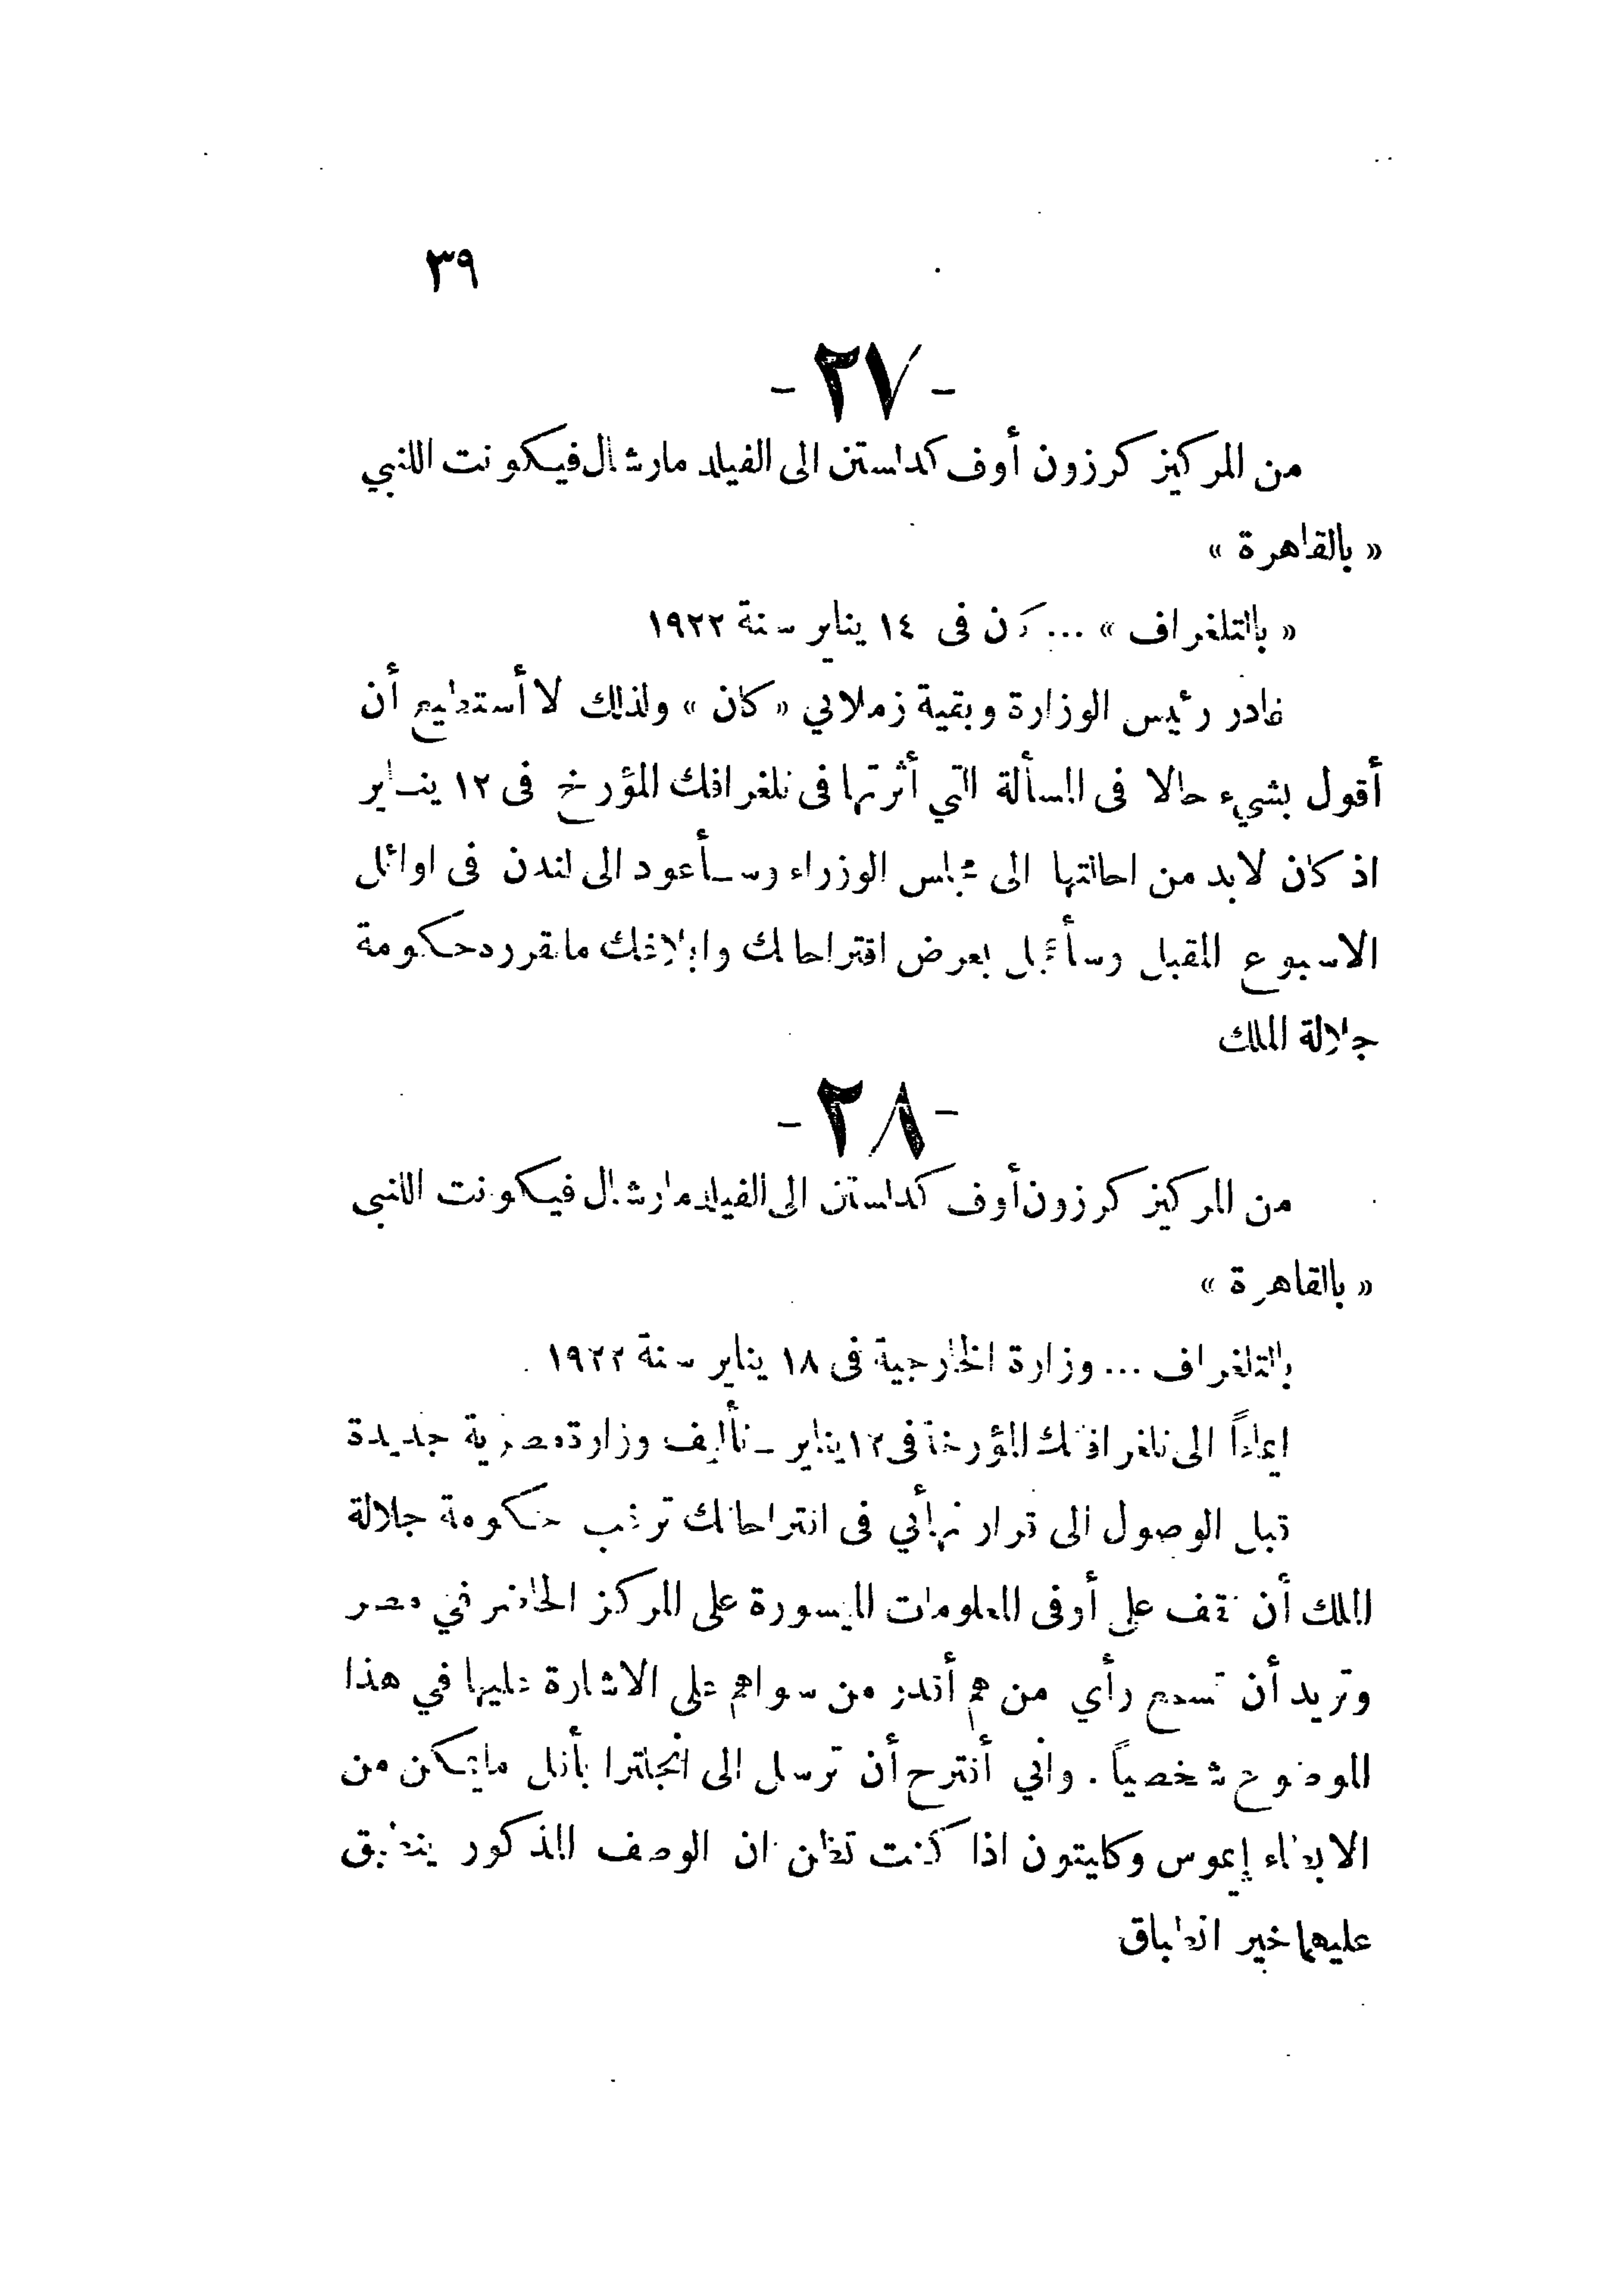 ٣٩
- ٢٧ -
من المركيز كرزون أوف كدلستن الى الفيلد مارشال فيكونت اللنبي
« بالقاهرة »
« بالتلغراف » ... كان فى ١٤ يناير سنة ١٩٢٢
غادر رئيس الوزارة وبقية زملائي « كان » ولذلك لا أستطيع أن
أقول بشيء حالا فى المسألة التي أثرتها فى تلغرافك المؤرخ فى ١٢ ينـاير
اذ كان لابد من احالتها الى مجلس الوزراء وسـأعود الى لندن فى اوائل
الاسبوع المقبل وسأعجل بعرض اقتراحاتك وابلاغك ماتقرره حكومة
جلالة الملك
- ٢٨ -
من المركيز كرزون أوف كدلستن الى الفيلد مارشال فيكونت اللنبى
« بالقاهرة »
بالتلغراف ... وزارة الخارجية فى ١٨ يناير سنة ١٩٢٢
ايماءً الى تلغرافاتك المؤرخة فى ١٢ يناير ـ تأليف وزارة مصرية جديدة
قبل الوصول الى قرار نهائي فى اقتراحاتك ترغب حكومة جلالة
الملك أن تقف على أوفى المعلومات الميسورة على المركز الحاضر في مصر
وتريد أن تسمع رأي من هم أقدر من سواهم على الاشارة عليها في هذا
الموضوع شخصياً . واني أقترح أن ترسل الى انجلترا بأقل مايمكن من
الابطاء إيموس وكايتون اذا كنت تظن ان الوصف المذكور ينطبق
عليهما خير انطباق